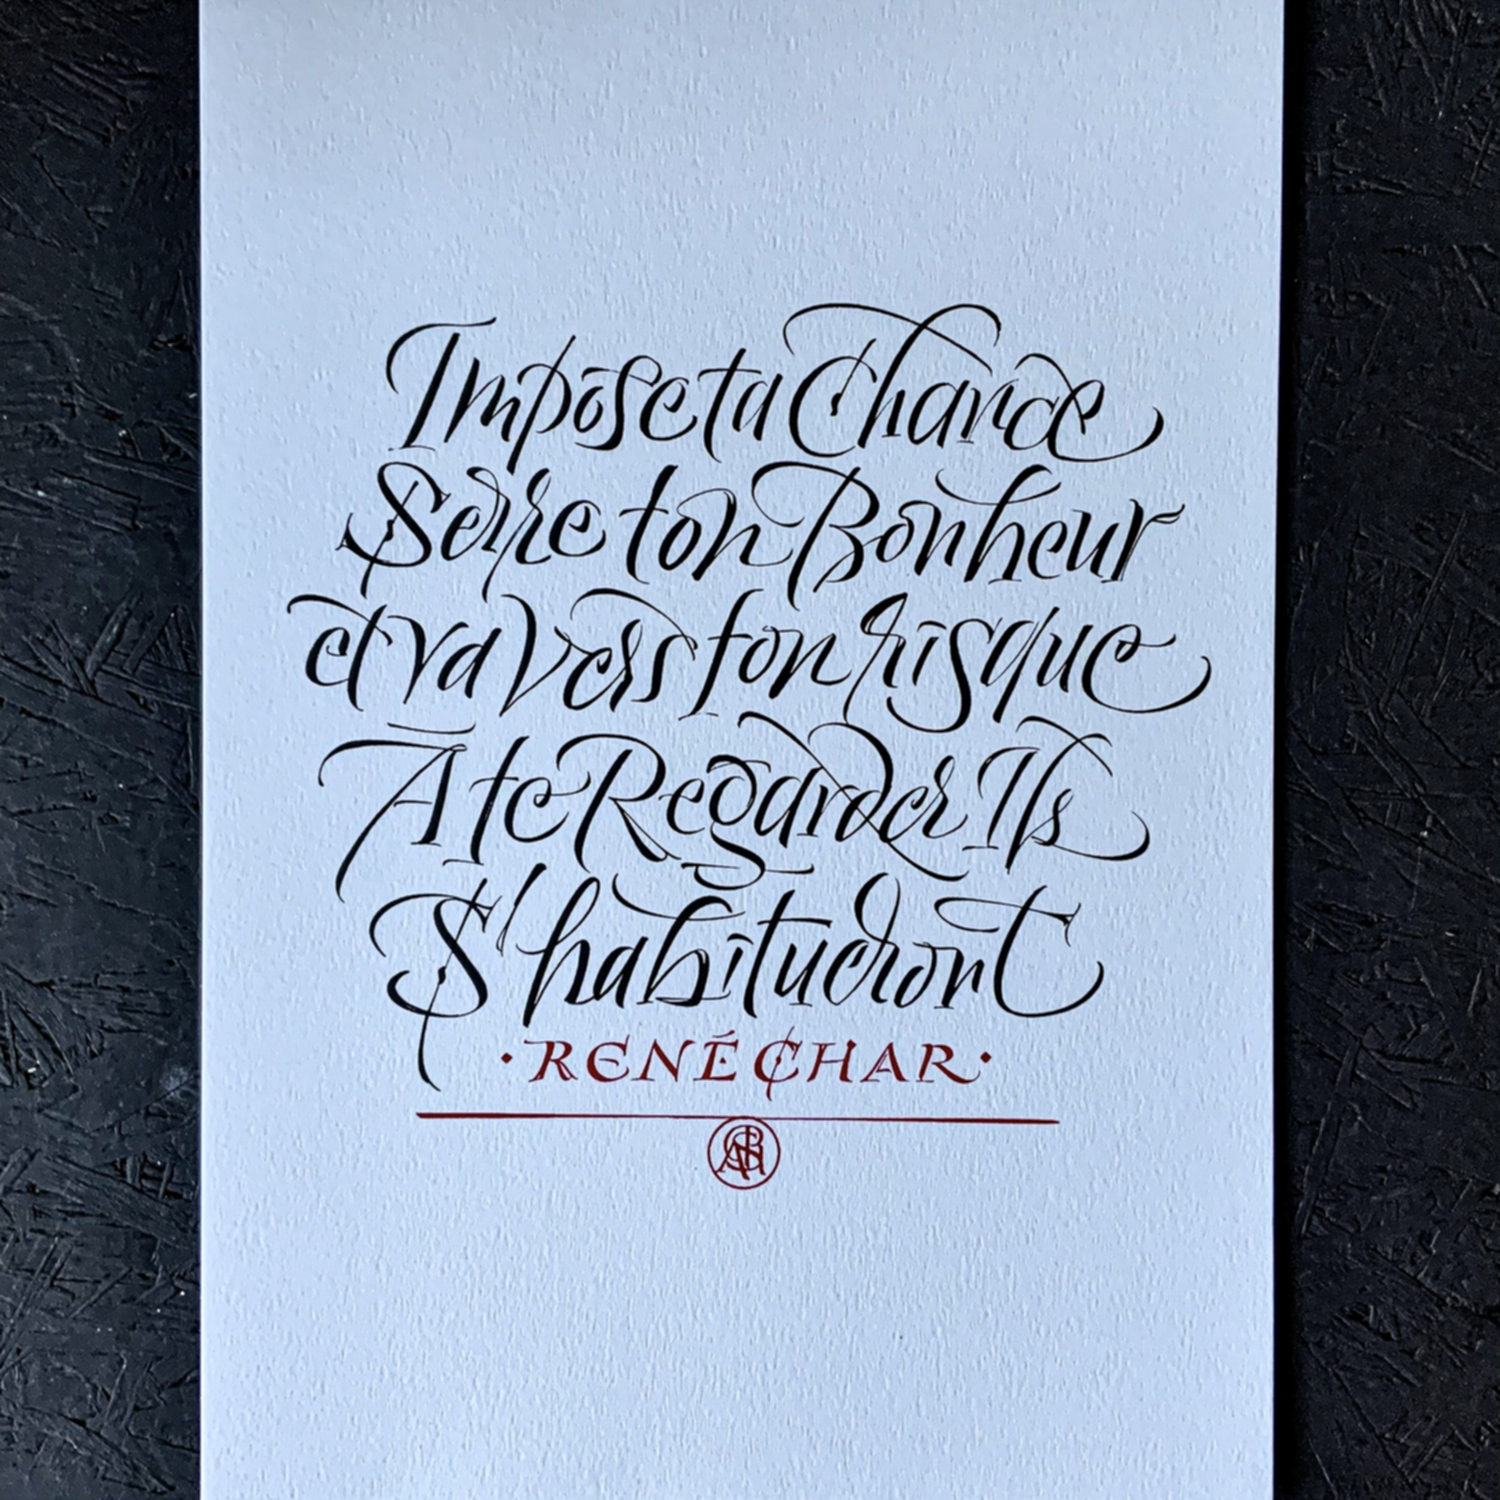 Impose ta Chance
Serre ton Bonheur
et va Vers ton risque
À te Regarder Ils
S'habitueront
·RENÉ CHAR·